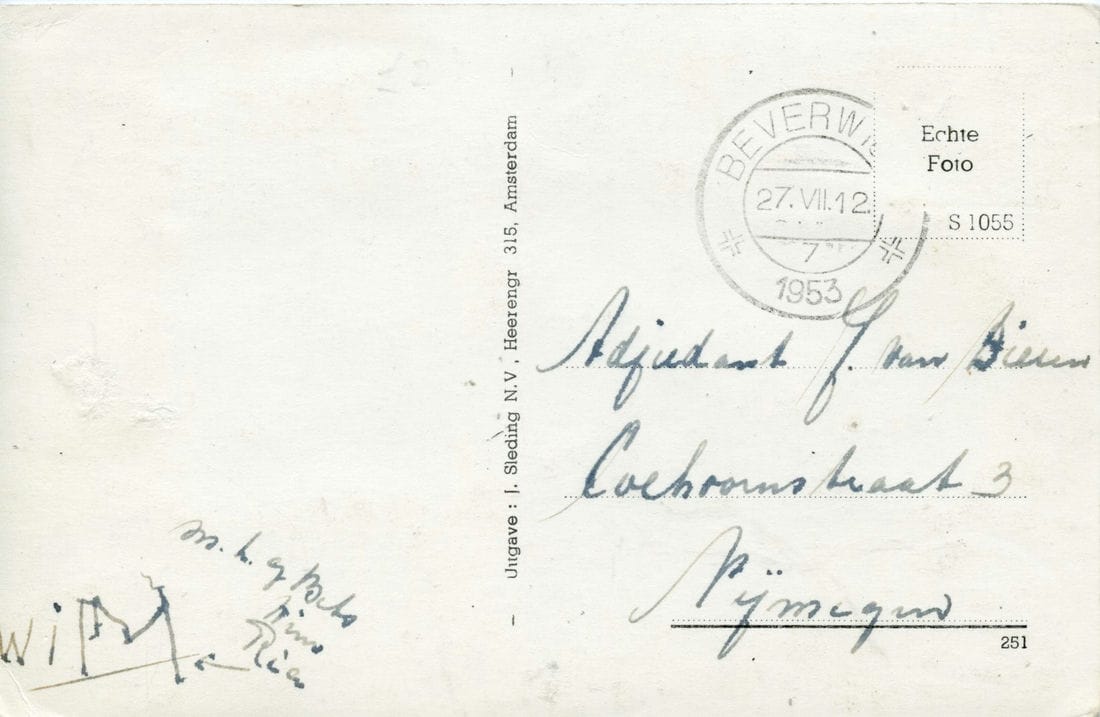 BEVERWIJ
27.VII.12
7
1953
Echte
Foto
S 1055
Adjudant J. van Biesen
Coehoornstraat 3
Nijmegen
251
Uitgave : J. Sleding N.V , Heerengr 315, Amsterdam
Bets
Wim
Ria